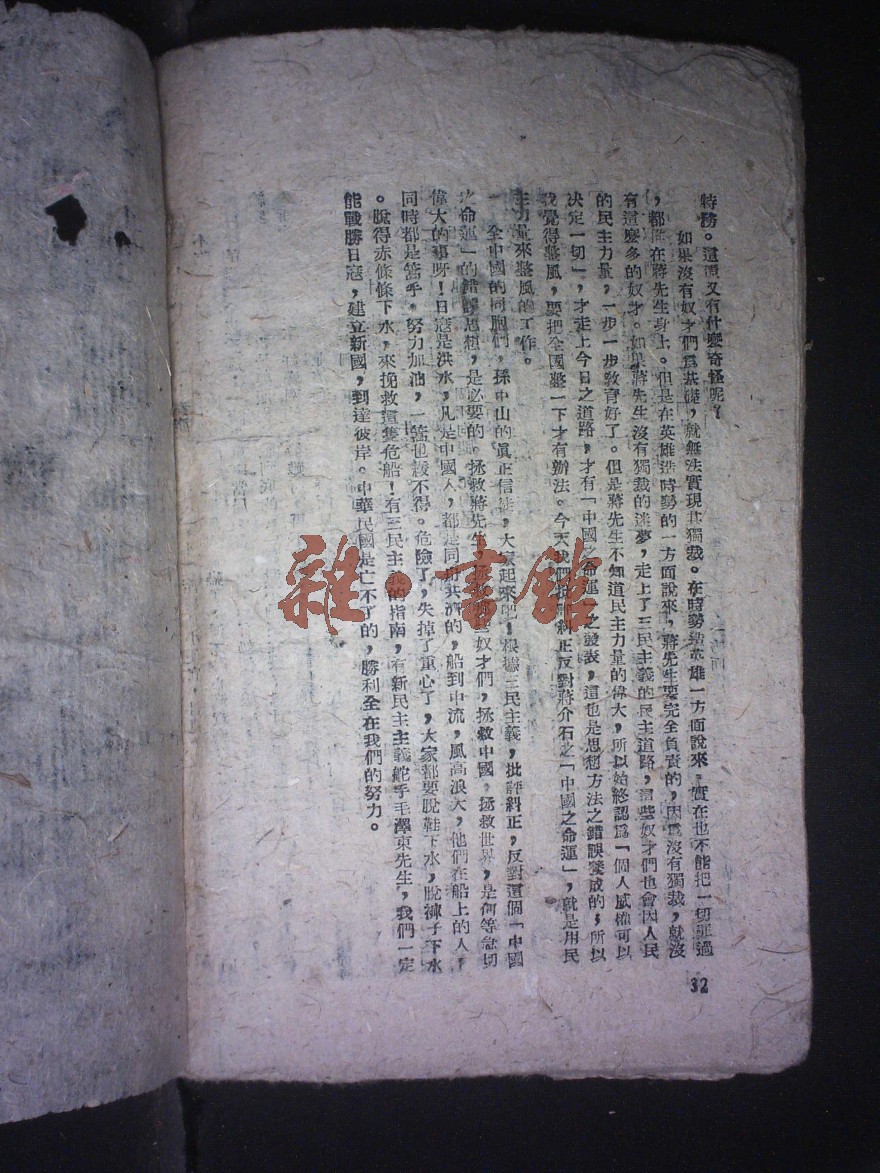 特務。這還又有什麼奇怪呢？
如果沒有奴才們爲基礎，就無法實現其獨裁。在時勢造英雄一方面說來，實在也不能把一切罪過
，都推在蔣先生身上。但是在英雄造時勢的一方面說來，蔣先生要完全負責的，因爲沒有獨裁，就沒
有這麼多的奴才。如果蔣先生沒有獨裁的迷夢，走上了三民主義的民主道路，這些奴才們也會因人民
的民主力量，一步一步教育好了。但是蔣先生不知道民主力量的偉大，所以始終認爲「個人威權可以
決定一切」，才走上今日之道路，才有「中國之命運」之發表，這也是思想方法之錯誤變成的；所以
我覺得整風，要把全國整一下才有辦法。今天我們批評糾正反對蔣介石之「中國之命運」，就是用民
主力量來整風的工作。
全中國的同胞們，孫中山的眞正信徒，大家起來吧！根據三民主義，批評糾正，反對這個「中國
之命運」的錯誤思想，是必要的。拯救蔣先生，拯救 奴才們，拯救中國，拯救世界，是何等急切
偉大的事呀！日寇是洪水，凡是中國人，都是同舟共濟的，船到中流，風高浪大，他們在船上的人，
同時都是篙手。努力加油，一篙也緩不得。危險了，失掉了重心了，大家都要脫鞋下水，脫褲子下水
。脫得赤條條下水，來挽救這隻危船！有三民主義的指南，有新民主主義舵手毛澤東先生，我們一定
能戰勝日寇，建立新國，到達彼岸。中華民國是亡不了的，勝利全在我們的努力。
32
雜·書館